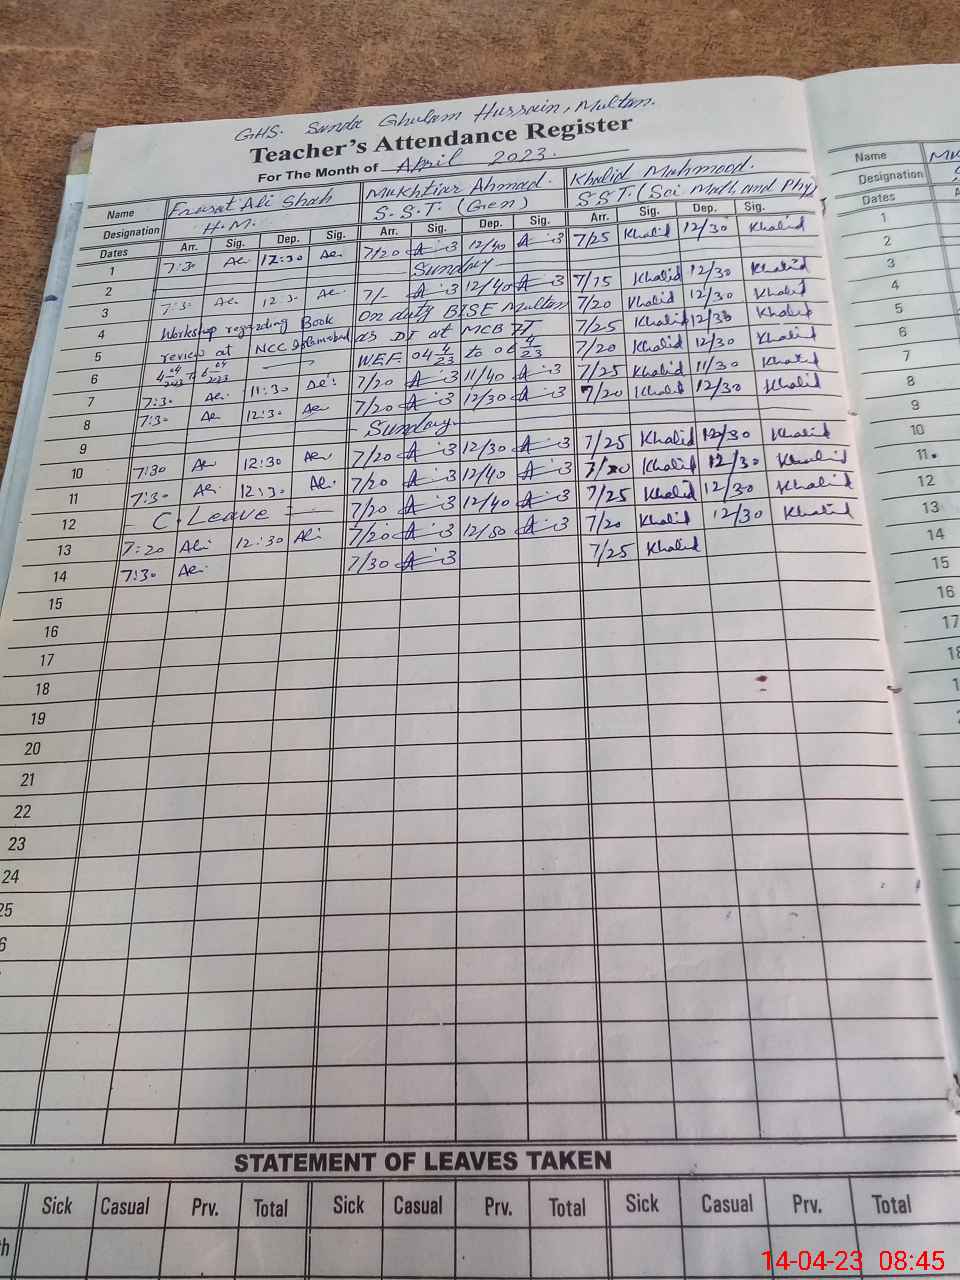 GHS. Sanda Ghulam Hussain, Multan.
Teacher's Attendance Register
For The Month of April 2023.
Name Ali Shah Mukhtiar Ahmad. Khalid Mahmood. Name
Designation H.M. S.S.T. (Gen) S.S.T. (Sci Math and Phy) Designation
Dates Arr. Sig. Dep. Sig. Arr. Sig. Dep. Sig. Arr. Sig. Dep. Sig. Dates
1 7:30 12:30 7/20 12/40 7/25 Khalid 12/30 Khalid 1
2 Sunday 2
3 7:30 12:30 7/- 12/40 7/15 Khalid 12/30 Khalid 3
4 Workshop regarding Book On duty BISE Multan 7/20 Khalid 12/30 Khalid 4
5 review at NCC as DI at MCB 7/25 Khalid 12/30 Khalid 5
6 W.E.F. 04 4/23 to 06 4/23 7/20 Khalid 12/30 Khalid 6
7 7:30 11:30 7/20 11/40 7/25 Khalid 11/30 Khalid 7
8 7:30 12:30 7/20 12/30 7/20 Khalid 12/30 Khalid 8
9 Sunday 9
10 7:30 12:30 7/20 12/30 7/25 Khalid 12/30 Khalid 10
11 7:30 12:30 7/20 12/40 Khalid 12/30 Khalid 11
12 C. Leave 7/20 12/40 7/25 Khalid 12/30 Khalid 12
13 7:20 Ali 12:30 Ali 7/20 12/50 7/20 Khalid 12/30 Khalid 13
14 7:30 7/30 7/25 Khalid 14
15 15
16 16
17 17
18 18
19
20
21
22
23
24
25
STATEMENT OF LEAVES TAKEN
Sick Casual Prv. Total Sick Casual Prv. Total Sick Casual Prv. Total
14-04-23 08:45